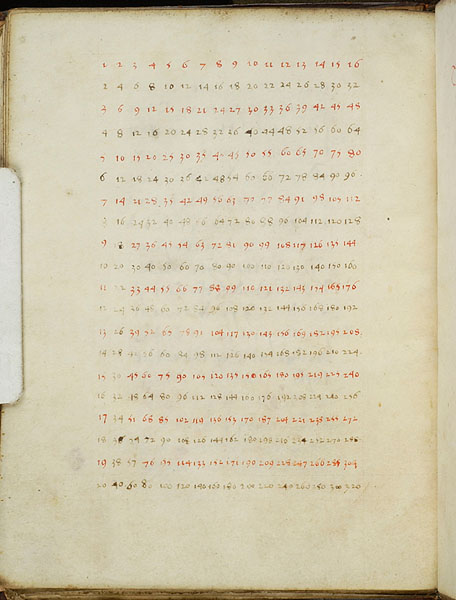 1 2 3 4 5 6 7 8 9 10 11 12 13 14 15 16
2 4 6 8 10 12 14 16 18 20 22 24 26 28 30 32
3 6 9 12 15 18 21 24 27 30 33 36 39 42 45 48
4 8 12 16 20 24 28 32 36 40 44 48 52 56 60 64
5 10 15 20 25 30 35 40 45 50 55 60 65 70 75 80
6 12 18 24 30 36 42 48 54 60 66 72 78 84 90 96
7 14 21 28 35 42 49 56 63 70 77 84 91 98 105 112
8 16 24 32 40 48 56 64 72 80 88 96 104 112 120 128
9 27 36 45 54 63 72 81 90 99 108 117 126 135 144
10 20 30 40 50 60 70 80 90 100 110 120 130 140 150 160
11 22 33 44 55 66 77 88 99 110 121 132 143 154 165 176
12 24 36 48 60 72 84 96 108 120 132 144 156 168 180 192
13 26 39 52 65 78 91 104 117 130 143 156 169 182 195 208
14 28 42 56 60 84 98 112 126 140 154 168 182 196 210 224
15 30 45 60 75 90 105 120 135 150 165 180 195 210 225 240
16 32 48 64 80 96 112 128 144 160 176 192 208 224 240 256
17 34 51 68 85 102 119 136 153 170 187 204 221 238 255 272
18 36 54 72 90 108 126 144 162 180 198 216 234 252 270 288
19 38 57 76 95 114 133 152 171 190 209 228 247 266 285 304
20 40 60 80 100 120 140 160 180 200 220 240 260 280 300 320